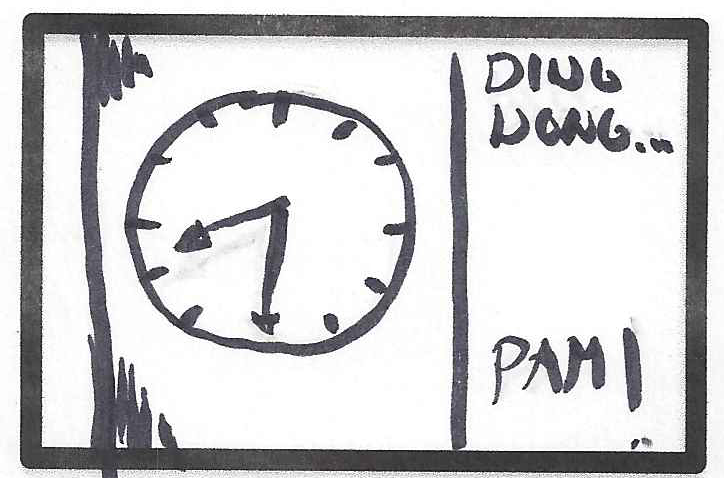 DING
DONG...
PAM!